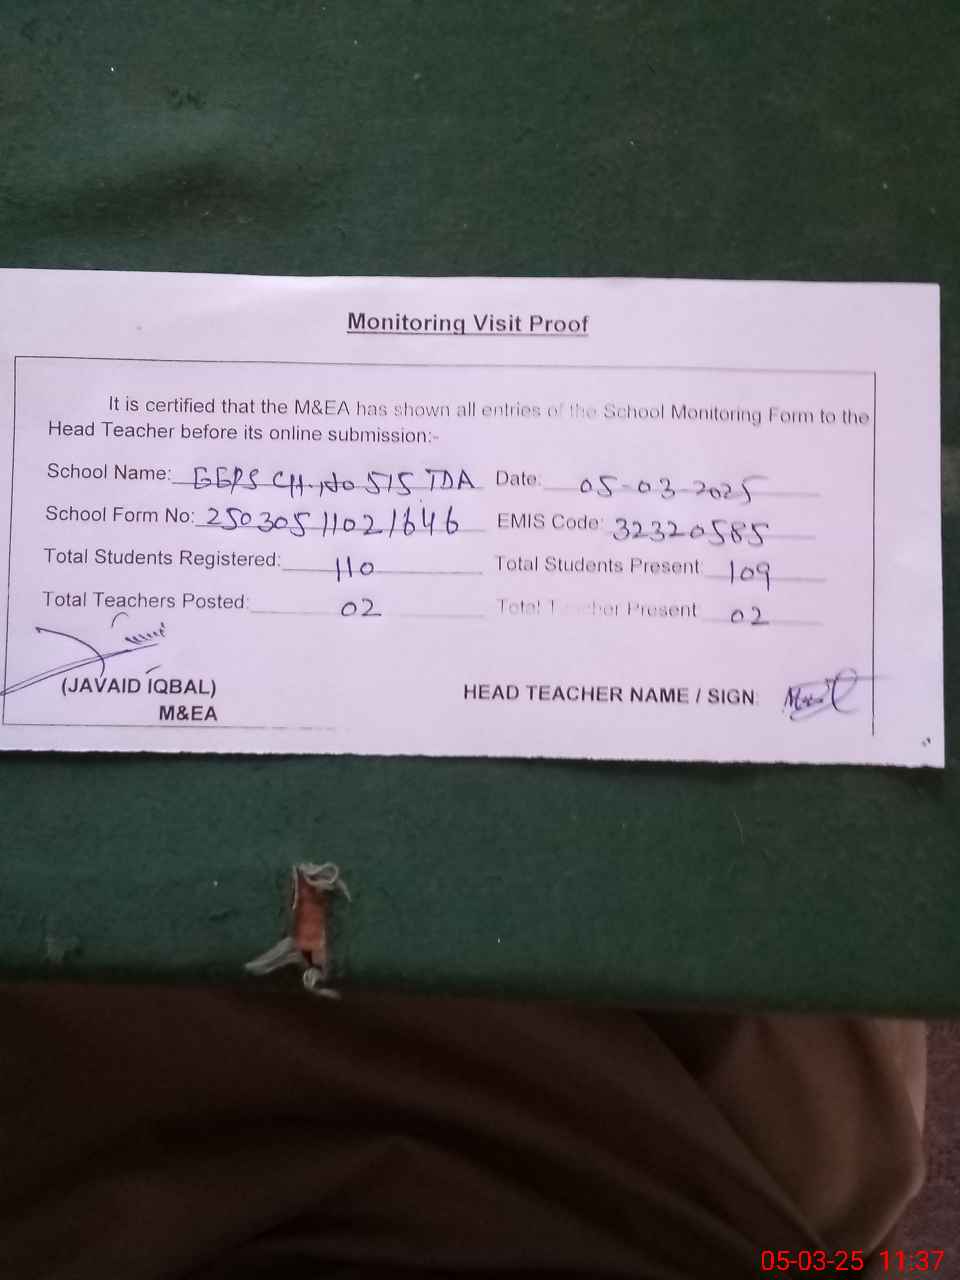 Monitoring Visit Proof
It is certified that the M&EA has shown all entries of the School Monitoring Form to the
Head Teacher before its online submission:-
School Name: GGPS CH. No 515 TDA Date: 05-03-2025
School Form No: 25030511021646 EMIS Code: 32320585
Total Students Registered: 110 Total Students Present: 109
Total Teachers Posted: 02 Total Teacher Present: 02
(JAVAID IQBAL) HEAD TEACHER NAME / SIGN:
M&EA
05-03-25 11:37